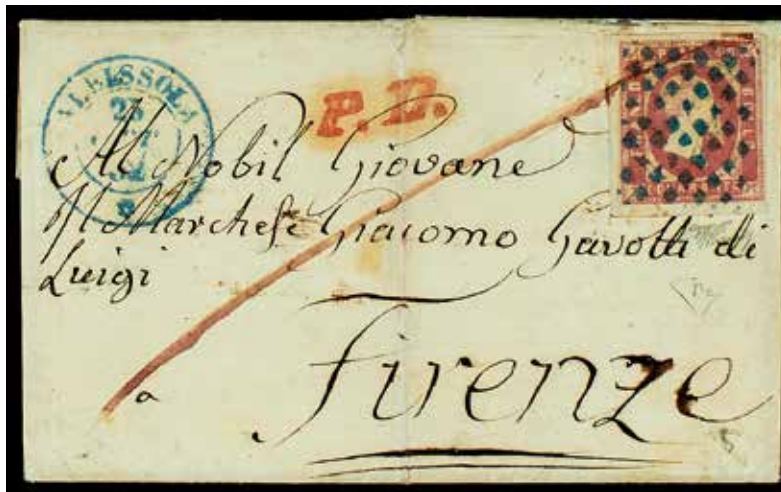 ALBISSOLA
P.D.
Al Nobil Giovane
Il Marchese Giacomo Gavotti di
Luigi
a
Firenze